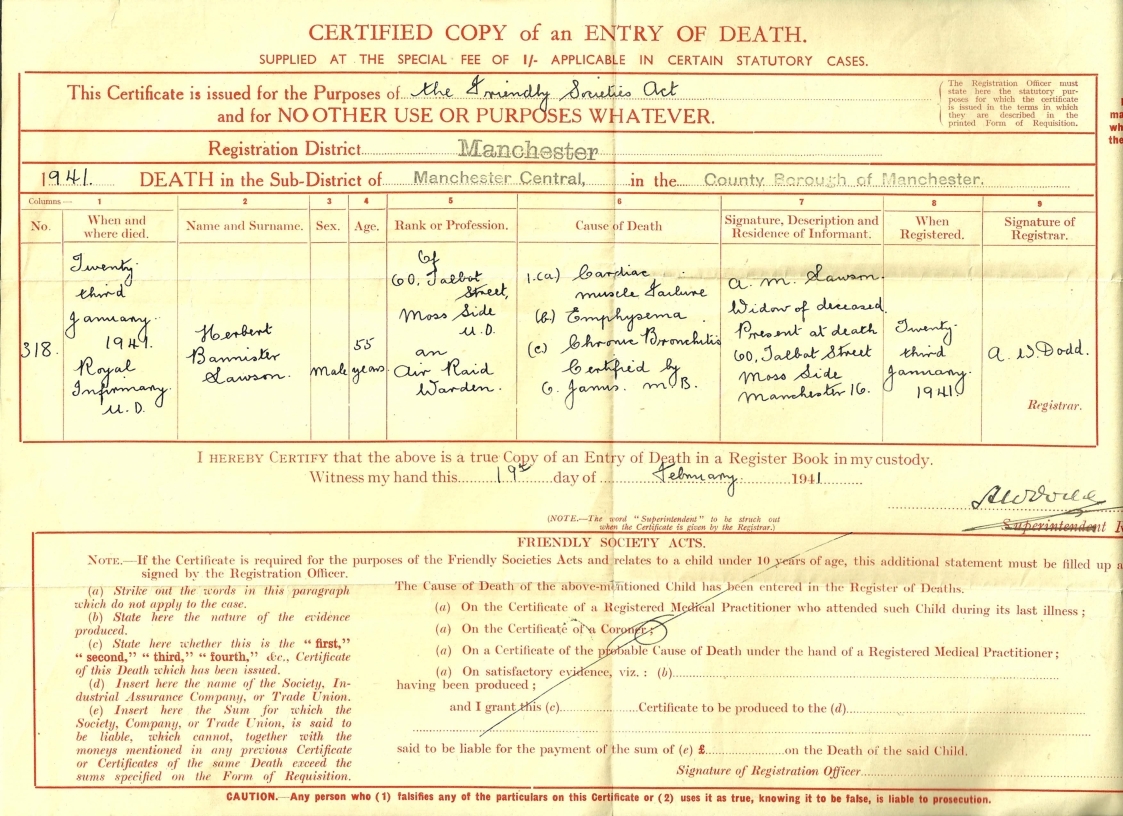 CERTIFIED COPY of an ENTRY OF DEATH.
SUPPLIED AT THE SPECIAL FEE OF 1/- APPLICABLE IN CERTAIN STATUTORY CASES.
This Certificate is issued for the Purposes of the Friendly Societies Act
and for NO OTHER USE OR PURPOSES WHATEVER.
The Registration Officer must
state here the statutory pur-
poses for which the certificate
is issued in the terms in which
they are described in the
printed Form of Requisition.
Registration District Manchester
1941. DEATH in the Sub-District of Manchester Central, in the County Borough of Manchester.
Columns— 1 2 3 4 5 6 7 8 9
No.
When and
where died.
Name and Surname.
Sex.
Age.
Rank or Profession.
Cause of Death
Signature, Description and
Residence of Informant.
When
Registered.
Signature of
Registrar.
318.
Twenty
third
January
1941.
Royal
Infirmary
U.D.
Herbert
Bannister
Lawson.
Male
55
years
Of
60, Talbot
Street,
Moss Side
U.D.
an
Air Raid
Warden.
1.(a) Cardiac
muscle Failure
(b) Emphysema
(c) Chronic Bronchitis
Certified by
M.B.
A. M. Lawson.
Widow of deceased
Present at death
60, Talbot Street
Moss Side
Manchester 16.
Twenty
third
January
1941
A. W Dodd.
Registrar.
I HEREBY CERTIFY that the above is a true Copy of an Entry of Death in a Register Book in my custody.
Witness my hand this 19th day of February 1941
AWDodd
Superintendent R
(NOTE.—The word "Superintendent" to be struck out
when the Certificate is given by the Registrar.)
FRIENDLY SOCIETY ACTS.
NOTE.—If the Certificate is required for the purposes of the Friendly Societies Acts and relates to a child under 10 years of age, this additional statement must be filled up a
signed by the Registration Officer.
(a) Strike out the words in this paragraph
which do not apply to the case.
(b) State here the nature of the evidence
produced.
(c) State here whether this is the "first,"
"second," "third," "fourth," &c., Certificate
of this Death which has been issued.
(d) Insert here the name of the Society, In-
dustrial Assurance Company, or Trade Union.
(e) Insert here the Sum for which the
Society, Company, or Trade Union, is said to
be liable, which cannot, together with the
moneys mentioned in any previous Certificate
or Certificates of the same Death exceed the
sums specified on the Form of Requisition.
The Cause of Death of the above-mentioned Child has been entered in the Register of Deaths.
(a) On the Certificate of a Registered Medical Practitioner who attended such Child during its last illness;
(a) On the Certificate of a Coroner;
(a) On a Certificate of the probable Cause of Death under the hand of a Registered Medical Practitioner;
(a) On satisfactory evidence, viz.: (b)
having been produced;
and I grant this (c) Certificate to be produced to the (d)
said to be liable for the payment of the sum of (e) £ on the Death of the said Child.
Signature of Registration Officer
CAUTION.—Any person who (1) falsifies any of the particulars on this Certificate or (2) uses it as true, knowing it to be false, is liable to prosecution.